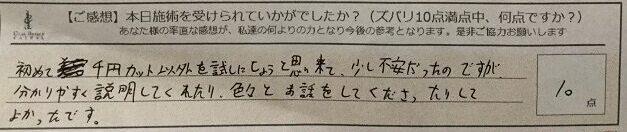 【ご感想】本日施術を受けられていかがでしたか？（ズバリ10点満点中、何点ですか？）
あなた様の率直な感想が、私達の何よりの力となり今後の参考となります。是非ご協力お願いします
初めて 千円カット以外を試しにしようと思い来て、少し不安だったのですが
分かりやすく説明してくれたり、色々とお話をしてくださったりして
よかったです。
10点